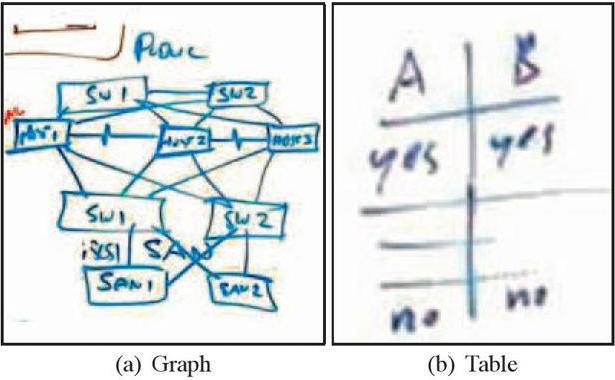 SW1 SW2
HOST1 HOST2 HOST3
SW1 SW2
iSCSI SAN
SAN1 SAN2
(a) Graph
A B
yes yes
no no
(b) Table